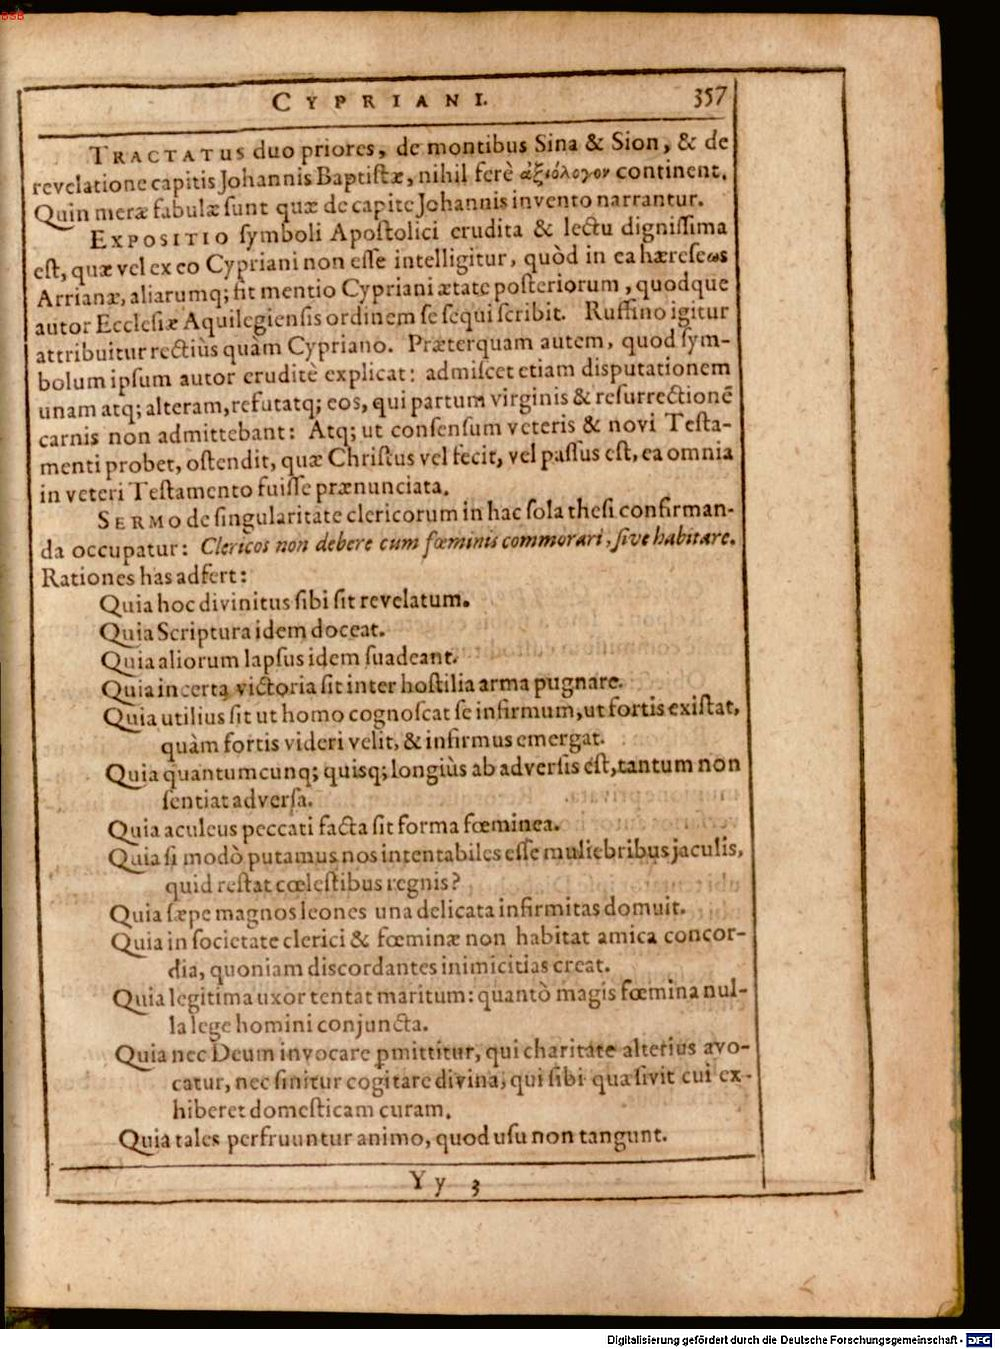 BSB
CYPRIANI. 357
TRACTATUS duo priores, de montibus Sina & Sion, & de
revelatione capitis Johannis Baptistæ, nihil ferè ἀξιόλογον continent.
Quin meræ fabulæ sunt quæ de capite Johannis invento narrantur.
EXPOSITIO symboli Apostolici erudita & lectu dignissima
est, quæ vel ex eo Cypriani non esse intelligitur, quòd in ea hæreseωs
Arrianæ, aliarumq; fit mentio Cypriani ætate posteriorum, quodque
autor Ecclesiæ Aquilegiensis ordinem se sequi scribit. Ruffino igitur
attribuitur rectiùs quàm Cypriano. Præterquam autem, quod sym-
bolum ipsum autor eruditè explicat: admiscet etiam disputationem
unam atq; alteram, refutatq; eos, qui partum virginis & resurrectionē
carnis non admittebant: Atq; ut consensum veteris & novi Testa-
menti probet, ostendit, quæ Christus vel fecit, vel passus est, ea omnia
in veteri Testamento fuisse prænunciata.
SERMO de singularitate clericorum in hac sola thesi confirman-
da occupatur: Clericos non debere cum fœminis commorari, sive habitare.
Rationes has adfert:
Quia hoc divinitus sibi sit revelatum.
Quia Scriptura idem doceat.
Quia aliorum lapsus idem suadeant.
Quia incerta victoria sit inter hostilia arma pugnare.
Quia utilius sit ut homo cognoscat se infirmum, ut fortis existat,
quàm fortis videri velit, & infirmus emergat.
Quia quantumcunq; quisq; longiùs ab adversis est, tantum non
sentiat adversa.
Quia aculeus peccati facta sit forma fœminea.
Quia si modò putamus nos intentabiles esse muliebribus jaculis,
quid restat cœlestibus regnis?
Quia sæpe magnos leones una delicata infirmitas domuit.
Quia in societate clerici & fœminæ non habitat amica concor-
dia, quoniam discordantes inimicitias creat.
Quia legitima uxor tentat maritum: quantò magis fœmina nul-
la lege homini conjuncta.
Quia nec Deum invocare ꝑmittitur, qui charitate alterius avo-
catur, nec sinitur cogitare divina, qui sibi quæsivit cui ex-
hiberet domesticam curam.
Quia tales perfruuntur animo, quod usu non tangunt.
Yy 3
Digitalisierung gefördert durch die Deutsche Forschungsgemeinschaft - DFG